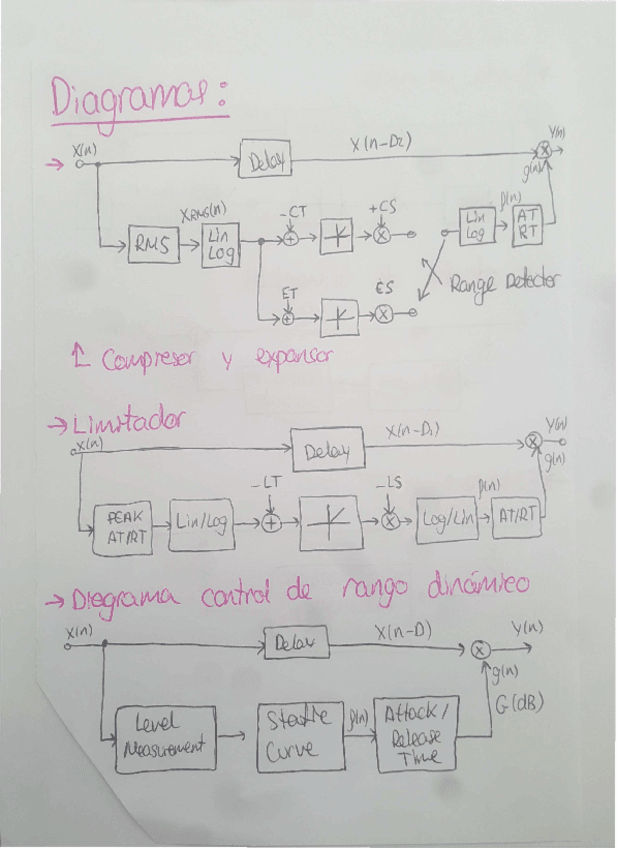 Diagramas:
X(n) Delay X(n-D2) Y(n)
g(n)
XRMS(n) -CT +CS f(n)
RMS Lin Log Lin Log AT RT
ET ES Range Detector
Compresor y expansor
Limitador
X(n) Delay X(n-D1) Y(n)
g(n)
-LT -LS f(n)
PEAK AT/RT Lin/Log Log/Lin AT/RT
Diagrama control de rango dinámico
X(n) Delay X(n-D) Y(n)
g(n)
G(dB)
Level Measurement Curve f(n) Attack/ Release Time